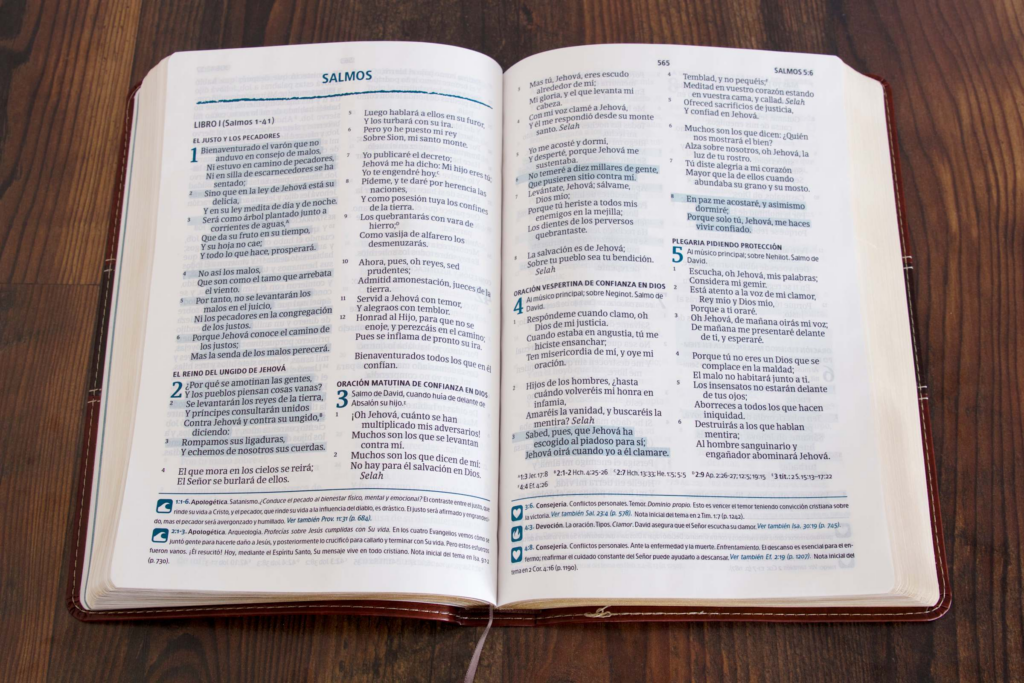 SALMOS
LIBRO I (Salmos 1-41)
EL JUSTO Y LOS PECADORES
1 Bienaventurado el varón que no
anduvo en consejo de malos,
Ni estuvo en camino de pecadores,
Ni en silla de escarnecedores se ha
sentado;
2 Sino que en la ley de Jehová está su
delicia,
Y en su ley medita de día y de noche.
3 Será como árbol plantado junto a
corrientes de aguas,
Que da su fruto en su tiempo,
Y su hoja no cae;
Y todo lo que hace, prosperará.
4 No así los malos,
Que son como el tamo que arrebata
el viento.
5 Por tanto, no se levantarán los
malos en el juicio,
Ni los pecadores en la congregación
de los justos.
6 Porque Jehová conoce el camino de
los justos;
Mas la senda de los malos perecerá.
EL REINO DEL UNGIDO DE JEHOVÁ
2 ¿Por qué se amotinan las gentes,
Y los pueblos piensan cosas vanas?
2 Se levantarán los reyes de la tierra,
Y príncipes consultarán unidos
Contra Jehová y contra su ungido,
diciendo:
3 Rompamos sus ligaduras,
Y echemos de nosotros sus cuerdas.
4 El que mora en los cielos se reirá;
El Señor se burlará de ellos.
5 Luego hablará a ellos en su furor,
Y los turbará con su ira.
6 Pero yo he puesto mi rey
Sobre Sion, mi santo monte.
7 Yo publicaré el decreto;
Jehová me ha dicho: Mi hijo eres tú;
Yo te engendré hoy.
8 Pídeme, y te daré por herencia las
naciones,
Y como posesión tuya los confines
de la tierra.
9 Los quebrantarás con vara de
hierro;
Como vasija de alfarero los
desmenuzarás.
10 Ahora, pues, oh reyes, sed
prudentes;
Admitid amonestación, jueces de la
tierra.
11 Servid a Jehová con temor,
Y alegraos con temblor.
12 Honrad al Hijo, para que no se
enoje, y perezcáis en el camino;
Pues se inflama de pronto su ira.
Bienaventurados todos los que en él
confían.
ORACIÓN MATUTINA DE CONFIANZA EN DIOS
3 Salmo de David, cuando huía de delante de
Absalón su hijo.
1 ¡Oh Jehová, cuánto se han
multiplicado mis adversarios!
Muchos son los que se levantan
contra mí.
2 Muchos son los que dicen de mí:
No hay para él salvación en Dios.
Selah
1:1-6. Apologética. Satanismo. ¿Conduce el pecado al bienestar físico, mental y emocional? El contraste entre el justo, que
rinde su vida a Cristo, y el pecador, que rinde su vida a la influencia del diablo, es drástico. El justo será afirmado y engrandecido,
do, mas el pecador será avergonzado y humillado. Ver también Prov. 11:31 (p. 684).
2:1-3. Apologética. Arqueología. Profecías sobre Jesús cumplidas con Su vida. En los cuatro Evangelios vemos cómo se
juntó gente para hacerle daño a Jesús, y posteriormente lo crucificó para callarlo y terminar con Su vida. Pero estos esfuerzos
fueron vanos. ¡Él resucitó! Hoy, mediante el Espíritu Santo, Su mensaje vive en todo cristiano. Nota inicial del tema en Isa. 9:1-2
(p. 730).
565
SALMOS 5:6
3 Mas tú, Jehová, eres escudo
alrededor de mí;
Mi gloria, y el que levanta mi
cabeza.
4 Con mi voz clamé a Jehová,
Y él me respondió desde su monte
santo. Selah
5 Yo me acosté y dormí,
Y desperté, porque Jehová me
sustentaba.
6 No temeré a diez millares de gente,
Que pusieren sitio contra mí.
7 Levántate, Jehová; sálvame,
Dios mío;
Porque tú heriste a todos mis
enemigos en la mejilla;
Los dientes de los perversos
quebrantaste.
8 La salvación es de Jehová;
Sobre tu pueblo sea tu bendición.
Selah
ORACIÓN VESPERTINA DE CONFIANZA EN DIOS
4 Al músico principal; sobre Neginot. Salmo de
David.
1 Respóndeme cuando clamo, oh
Dios de mi justicia.
Cuando estaba en angustia, tú me
hiciste ensanchar;
Ten misericordia de mí, y oye mi
oración.
2 Hijos de los hombres, ¿hasta
cuándo volveréis mi honra en
infamia,
Amaréis la vanidad, y buscaréis la
mentira? Selah
3 Sabed, pues, que Jehová ha
escogido al piadoso para sí;
Jehová oirá cuando yo a él clamare.
4 Temblad, y no pequéis;
Meditad en vuestro corazón estando
en vuestra cama, y callad. Selah
5 Ofreced sacrificios de justicia,
Y confiad en Jehová.
6 Muchos son los que dicen: ¿Quién
nos mostrará el bien?
Alza sobre nosotros, oh Jehová, la
luz de tu rostro.
7 Tú diste alegría a mi corazón
Mayor que la de ellos cuando
abundaba su grano y su mosto.
8 En paz me acostaré, y asimismo
dormiré;
Porque solo tú, Jehová, me haces
vivir confiado.
PLEGARIA PIDIENDO PROTECCIÓN
5 Al músico principal; sobre Nehilot. Salmo de
David.
1 Escucha, oh Jehová, mis palabras;
Considera mi gemir.
2 Está atento a la voz de mi clamor,
Rey mío y Dios mío,
Porque a ti oraré.
3 Oh Jehová, de mañana oirás mi voz;
De mañana me presentaré delante
de ti, y esperaré.
4 Porque tú no eres un Dios que se
complace en la maldad;
El malo no habitará junto a ti.
5 Los insensatos no estarán delante
de tus ojos;
Aborreces a todos los que hacen
iniquidad.
6 Destruirás a los que hablan
mentira;
Al hombre sanguinario y
engañador abominará Jehová.
1:3 Jer. 17:8 2:1-2 Hch. 4:25-26 2:7 Hch. 13:33; He. 1:5; 5:5 2:9 Ap. 2:26-27; 12:5; 19:15
4:4 Ef. 4:26
3:6. Consejería. Conflictos personales. Temor. Dominio propio. Esto es vencer el temor teniendo convicción cristiana sobre
la victoria. Ver también Sal. 23:4 (p. 578). Nota inicial del tema en 2 Tim. 1:7 (p. 1242).
4:3. Devoción. La oración. Tipos. Clamor. David asegura que el Señor escucha su clamor. Ver también Isa. 30:19 (p. 745).
4:8. Consejería. Conflictos personales. Ante la enfermedad y la muerte. Enfrentamiento. El descanso es esencial para el en-
fermo; reafirmar el cuidado constante del Señor puede ayudarlo a descansar. Ver también Ef. 2:19 (p. 1207). Nota inicial del
tema en 2 Cor. 4:16 (p. 1190).